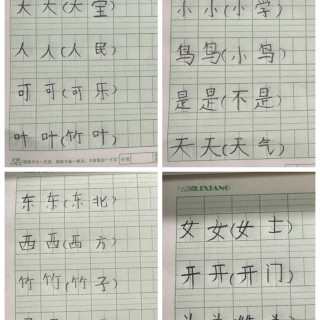 大 大(大
人 人(人 民)
可 可(可 乐)
叶 叶(竹 叶)
小 小(小 学)
鸟 鸟(小 鸟)
是 是(不 是)
天 天(天 气)
东 东(东 北)
西 西(西 方)
竹 竹(竹 子)
LIXIANG
女 女(女 士)
开 开(开 门)